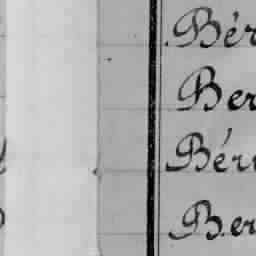 Bér
Ber
Bér
Ber